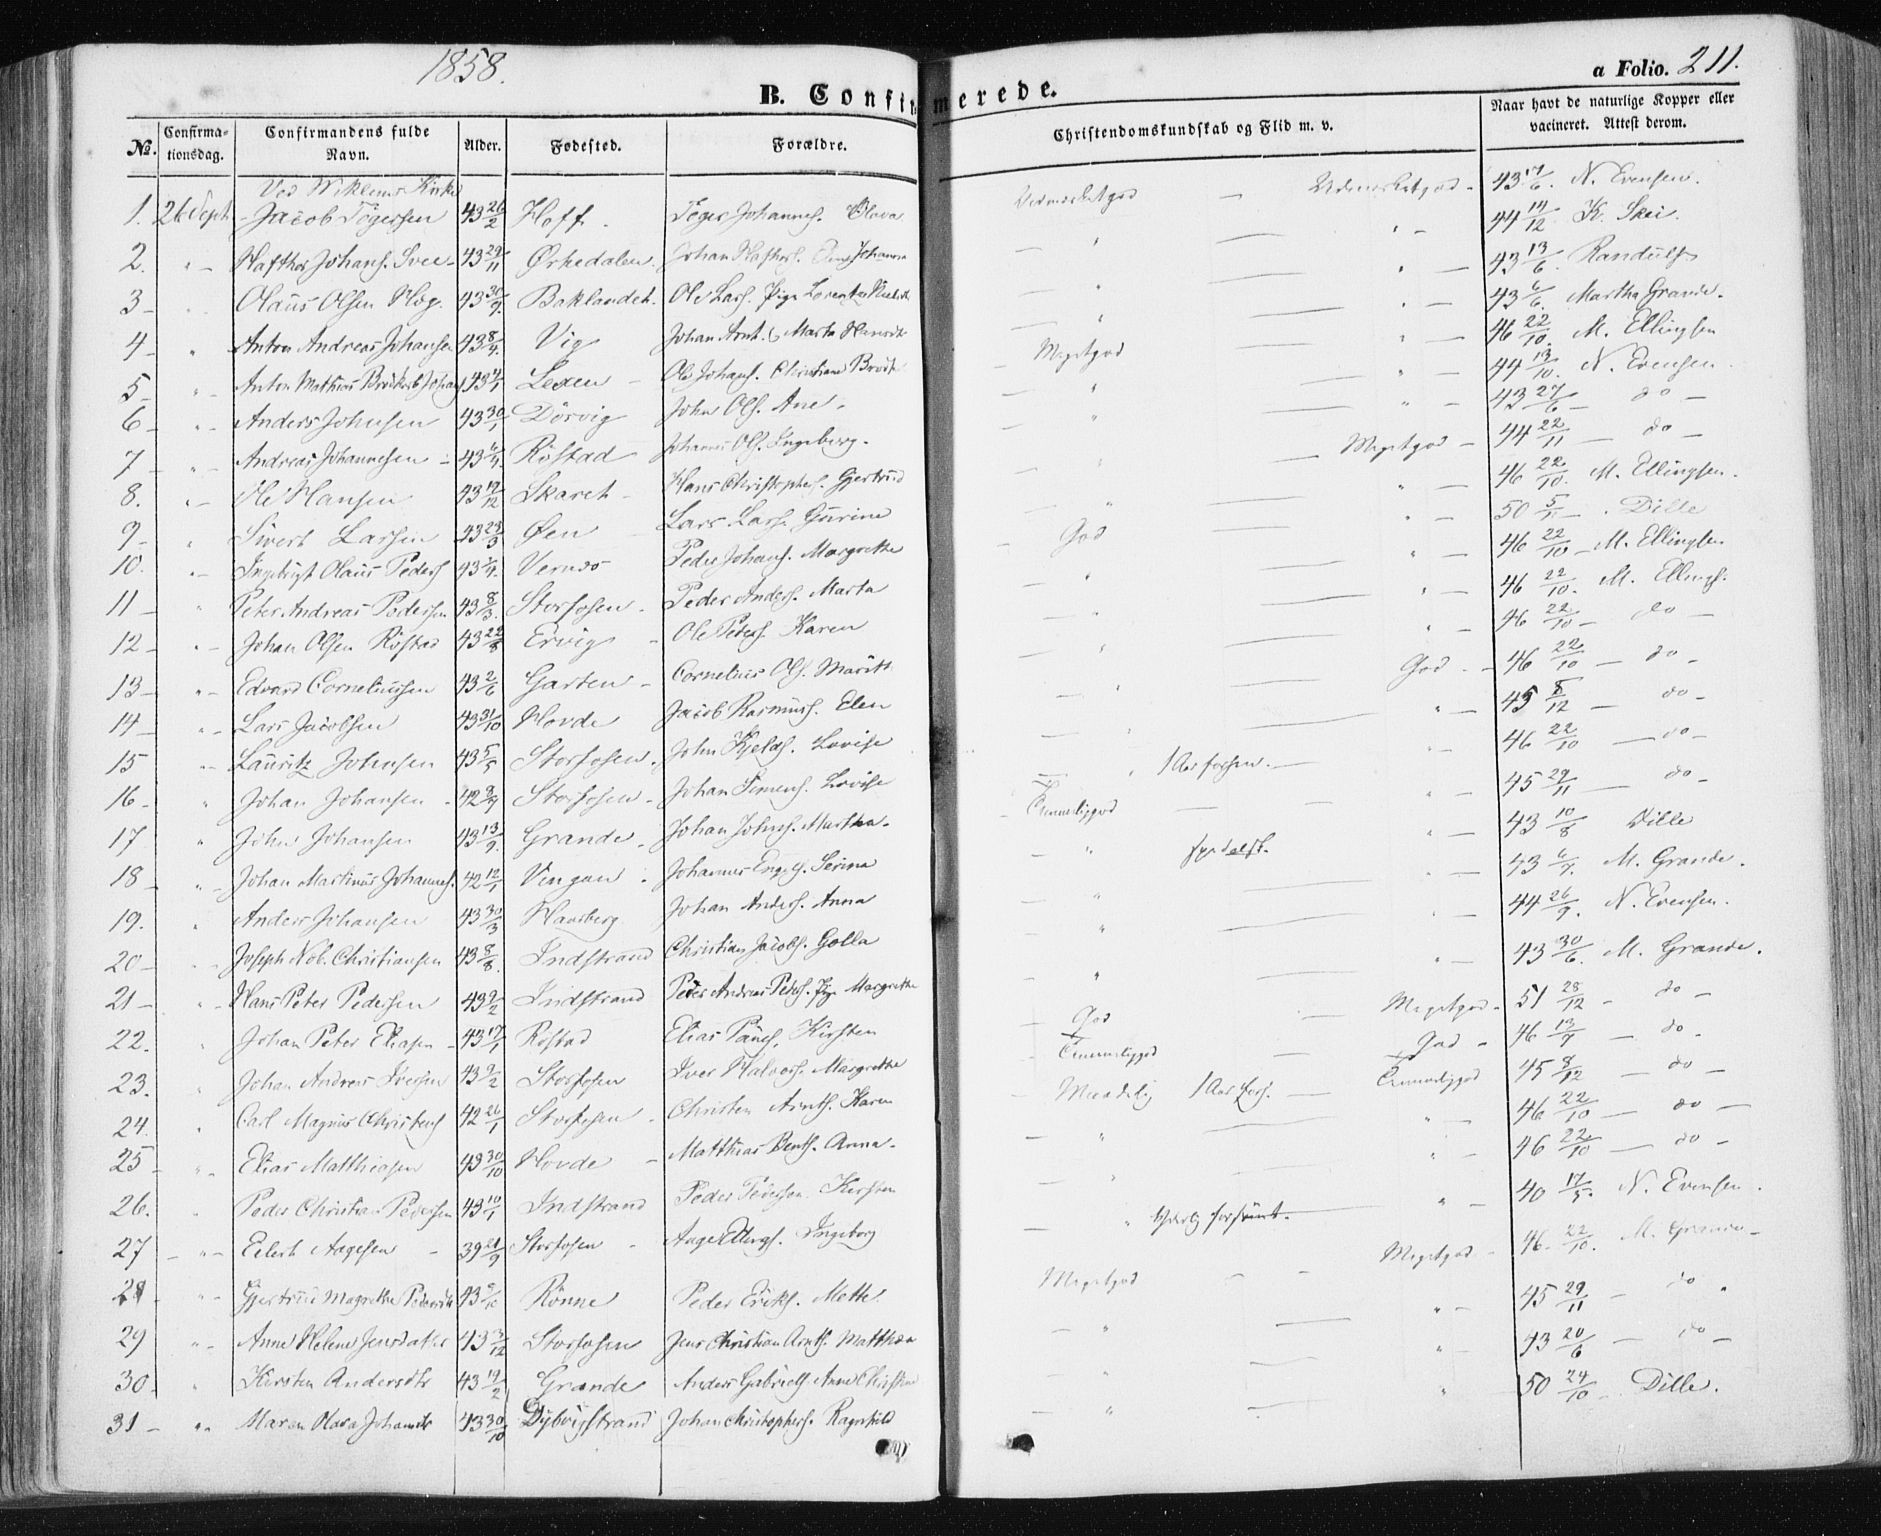 1858.
B. Confirmerede.
a Folio. 211.
No. Confirmationsdag. Confirmandens fulde Navn. Alder. Fødested. Forældre. Christendomskundskab og Flid m. v. Naar havt de naturlige Kopper eller vacineret. Attest derom.
Ved Kirke
1. 26 Sept Jacob Tøgersen 43 26/2 Hoff. Johannes. Olava Udmærketgod — Udmærketgod - 43 17/6. N. Evensen.
2. " — Hafthor Johans. 43 29/11 Ørkedalen. Johan — " — " — 44 14/12. K. Skei.
3 — " Olaus Olsen Høg. 43 30/9 Baklandet. Ole Lars. Pige — " — " — 43 13/6. Randulf
4 — " Anton Andreas Johansen 43 8/4. Vig Johan Arnt. Marta — " — " — 43 6/6. Martha Grande.
5 — " Anton Mathias Johan Lexen — Ole Johans. Christiane Megetgod — " — 46 22/10. M. Ellingsen
6 — " Anders Johnsen 43 30/1 Dörvig John Ols. Ane. — " — " — 44 13/10. N. Evensen.
7 — " Andreas Johannesen — Röstad Johannes Ols. Ingeberg. — " — " — 43 27/6 — do —
8. " — Ole Hansen 43 Skaret — Hans Christophers. Gjertrud — " — Megetgod — 44 22/11 — do —
9 — " Sivert Larsen 43 29/3 Øen Lars Lars. Gurine — " — " — 46 22/10. M. Ellingsen.
10. " — Ingebrigt Olaus Peders 43 Vernæs Peder Johans. Margrethe God — " — 50 5/11 — Dille
11 — " Peter Andreas Pedersen 43 8/3. Storfosen. Peder Anders. Marta — " — " — 46 22/10 — M. Ellingsen
12 — " Johan Olsen Röstad 43 22/8 Ervig — Ole Peders. Karen — " — " — 46 22/10. M. Ellings.
13 — " Edvard Corneliussen 43 2/6 Garten — Cornelius Ols. Maritt — " — " — 46 22/10 — do —
14 — " Lars Jacobsen 43 31/10 Hovde Jacob Rasmus. Elen — " — God — 46 22/10 — do —
15 " — Lauritz Johnsen 43 5/5 Storfosen. John Kjelds. Lovise — " — " — 45 8/12 — do —
16 — " Johan Johansen — 42 8/9 Storfosen — Johan Simens. Lovise — " 1 Aar forsen. — " — 46 22/10 — do —
17 " Johan Johansen 43 13/9. Grande. Johan Johns. Martha. Temmeliggod — " — 45 29/11 — do —
18 — " Johan Martinus Johannes. 42 12/1 Vingan. Johannes Serina — " — " — 43 10/8 Dille
19. " Anders Johansen 43 30/3 Hausberg. Johan Anders. Anna — " — " — 43 6/7. M. Grande.
20 — " Joseph Nob. Christiansen 43 8/8. Indstrand Christian Jacobs. Golla — " — " — 44 26/9. N. Evensen.
21 — " Hans Peter Pedersen 43 9/2 Indstrand Peder Andreas Peders. Pige Margrethe — " — " — 43 30/6. M. Grande.
22. " Johan Peter Eliasen — 43 17/1 Röstad Elias Kirsten God — Megetgod — 51 28/12 — do —
23. " Johan Andreas Iversen 43 9/2 Storfosen Iver Halvors. Margrethe Temmeliggod — God — 46 13/9 — do —
24. " Carl Magnus Christens 42 26/1 Storfosen — Christen Arnts. Karen Maadelig 1 Aar fors. — Temmeliggod 45 8/12 — do —
25 — " Elias Matthiasen 43 30/10 Hovde — Matthias Bents. Anna. — " — " — 46 22/10 — do —
26. " Peder Christian Pedersen 43 10/1 Indstrand Peder Pedersen Kirsten — " — " — 46 22/10 — do —
27 — " Eilert Aagesen — 39 21/9 Storfosen — Aage Ellings. Ingeborg — " forsömt. — " 40 17/5. N. Evensen.
28 — " Gjertrud Magrethe Pedersdtr 43 Rönne Peder Eriks. Mette. Megetgod — Megetgod — 46. 22/10. M. Grande —
29 " — Anne Helene Jensdatter 43 3/12 Storfosen Jens Christian Arnts. Matthea — " — " — 45 29/11 — do "
30. " Kirsten Andersdtr 43 19/2 Grande Anders Gabriels. Anne — " — " — 43 20/6 — do —
31 — " Maren Olava Johansdtr 43 30/10 Dybvigstrand Johan Christophers. Ragnhild — " — " — 50 24/10 — Dille.